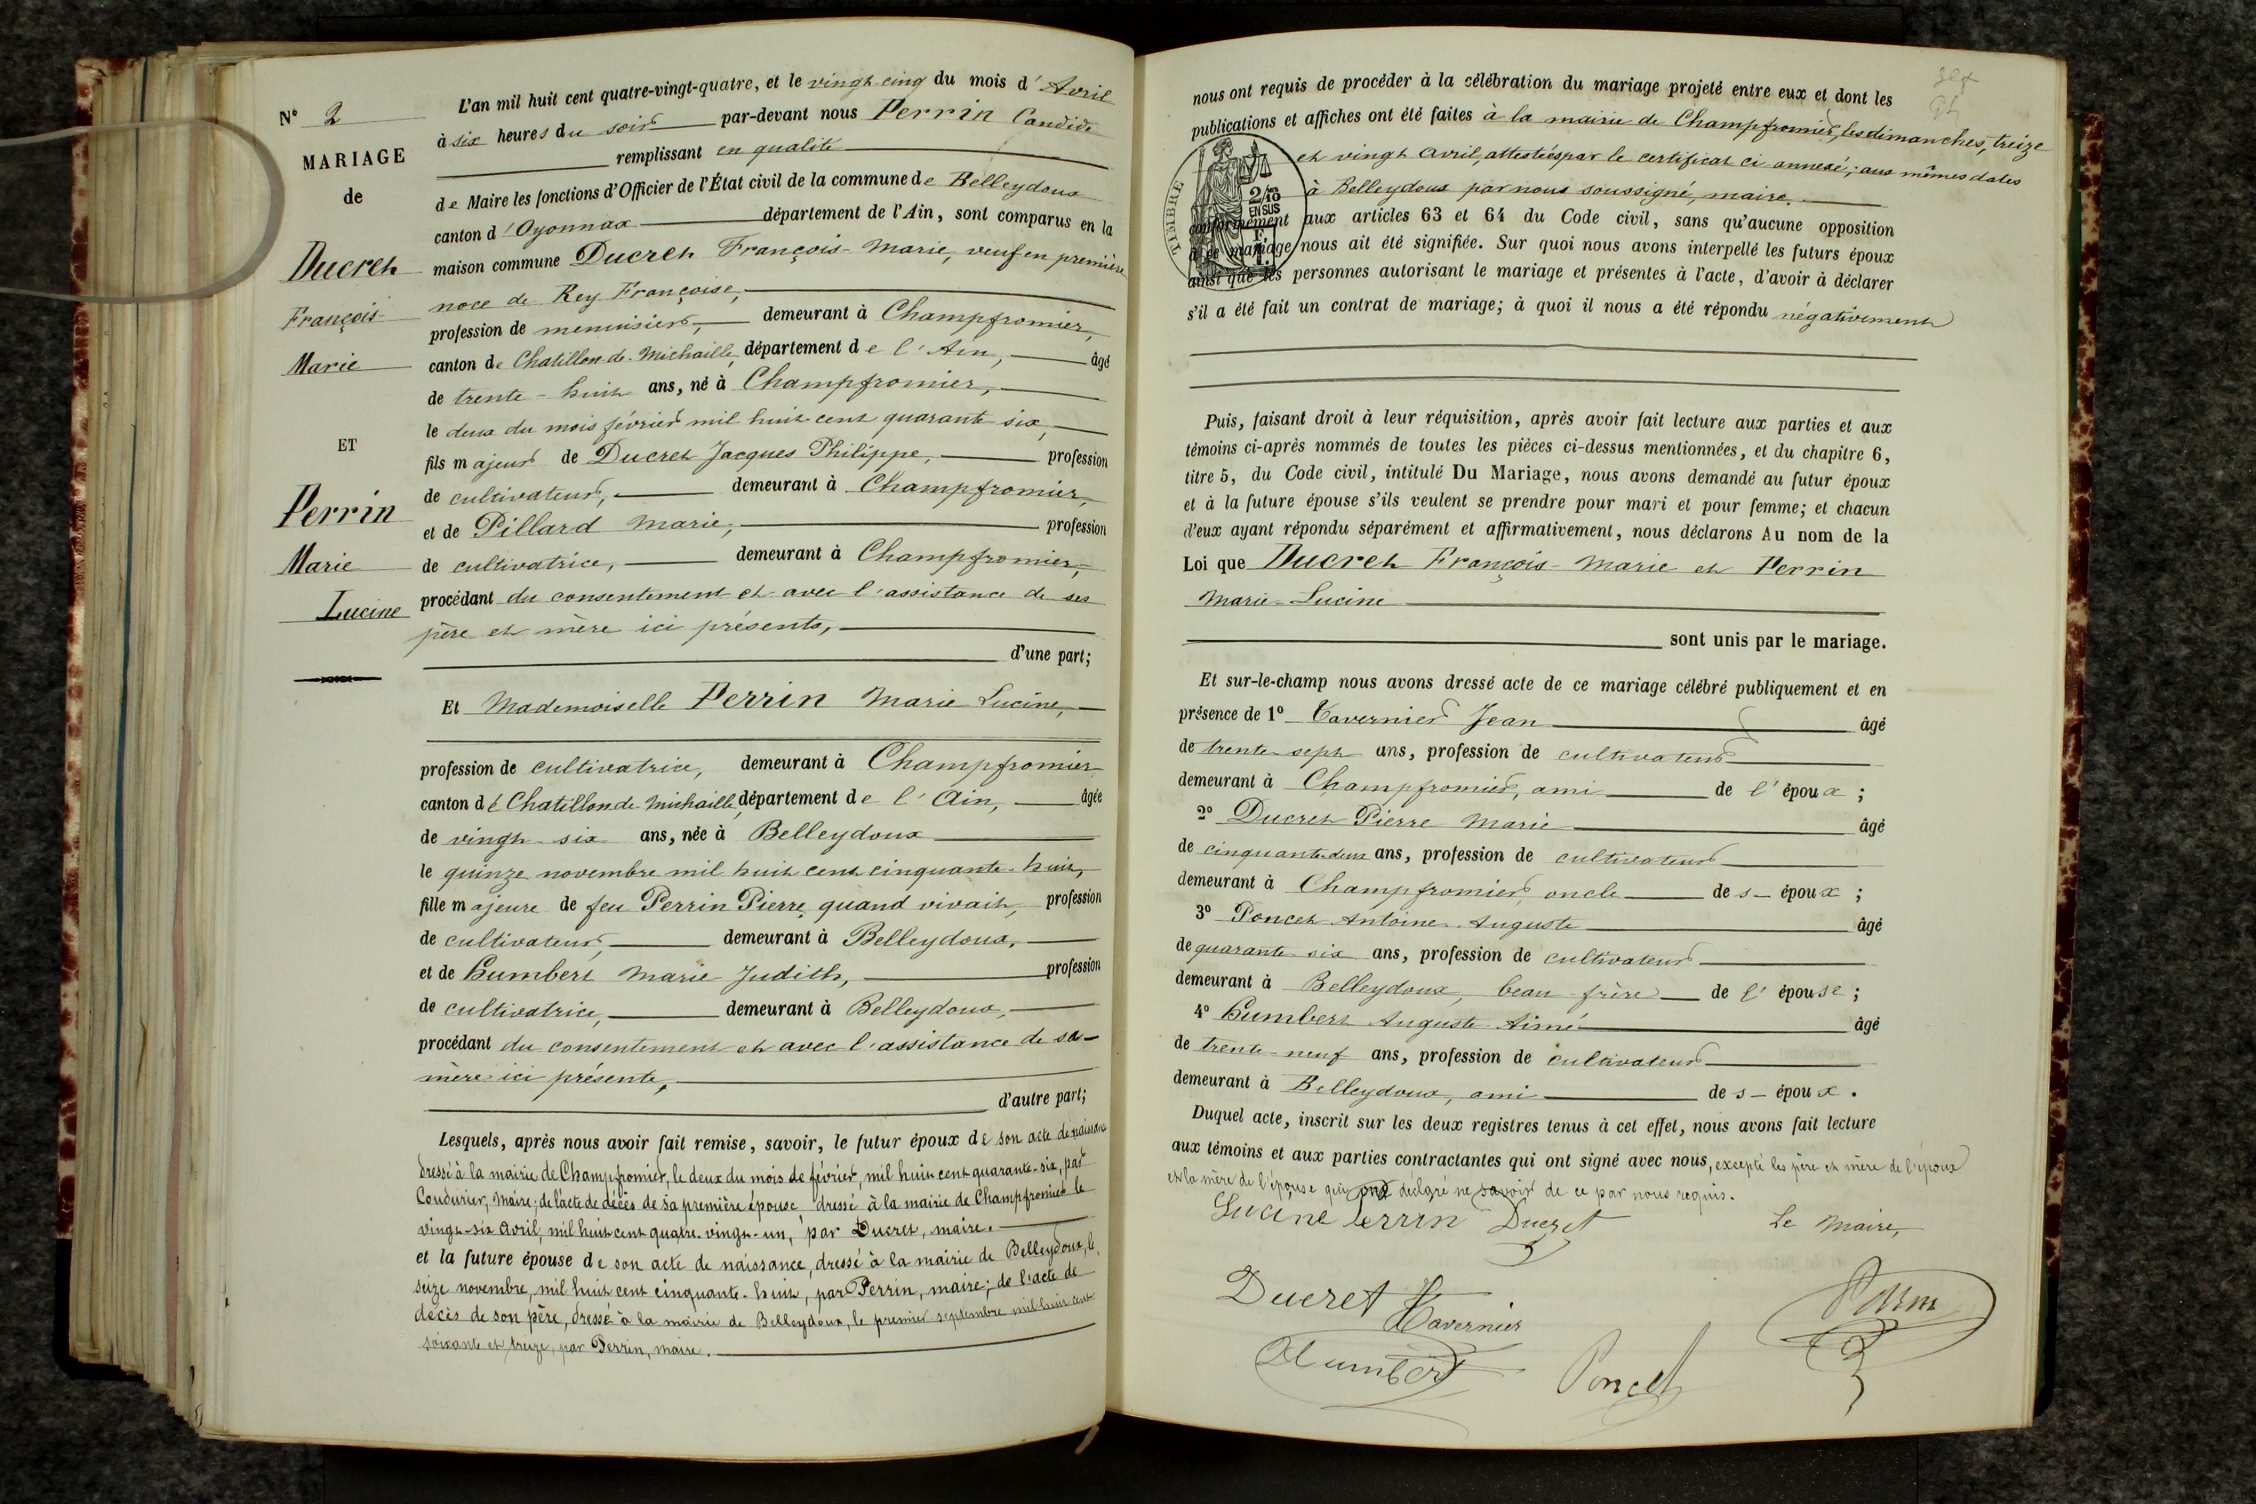 N° 2
MARIAGE
de
Ducret
François-
Marie
ET
Perrin
Marie
Lucine
L'an mil huit cent quatre-vingt-quatre, et le vingt-cinq du mois d'Avril
à six heures du soir par-devant nous Perrin Candide
remplissant en qualité
de Maire les fonctions d'Officier de l'État civil de la commune de Belleydoux
canton d'Oyonnax département de l'Ain, sont comparus en la
maison commune Ducret François-Marie, veuf en première
noce de Rey Françoise,
profession de menuisier, demeurant à Champfromier,
canton de Chatillon-de-Michaille, département de l'Ain, âgé
de trente-huit ans, né à Champfromier,
le deux du mois février mil huit cent quarante six,
fils majeur de Ducret Jacques Philippe, profession
de cultivateur, demeurant à Champfromier,
et de Pillard Marie, profession
de cultivatrice, demeurant à Champfromier,
procédant du consentement et avec l'assistance de ses
père et mère ici présents,
d'une part;
Et Mademoiselle Perrin Marie Lucine,
profession de cultivatrice, demeurant à Champfromier
canton dé Chatillon de Michaille, département de l'Ain, âgée
de vingt-six ans, née à Belleydoux
le quinze novembre mil huit cent cinquante-huit,
fille majeure de feu Perrin Pierre, quand vivait, profession
de cultivateur, demeurant à Belleydoux,
et de Humbert Marie Judith, profession
de cultivatrice, demeurant à Belleydoux,
procédant du consentement et avec l'assistance de sa
mère ici présente,
d'autre part;
Lesquels, après nous avoir fait remise, savoir, le futur époux de son acte de naissance
dressé à la mairie de Champfromier, le deux du mois de février, mil huit cent quarante-six, par
Coudurier, Maire; de l'acte de décès de sa première épouse dressé à la mairie de Champfromier le
vingt-six avril, mil huit cent quatre-vingt-un, par Ducret, maire.
et la future épouse de son acte de naissance, dressé à la mairie de Belleydoux, le
seize novembre, mil huit cent cinquante-huit, par Perrin, maire; de l'acte de
décès de son père, dressé à la mairie de Belleydoux, le premier septembre mil huit cent
soixante et treize, par Perrin, maire.
nous ont requis de procéder à la célébration du mariage projeté entre eux et dont les
publications et affiches ont été faites à la mairie de Champfromier, les dimanches, treize
et vingt avril, attestées par le certificat ci-annexé; aux mêmes dates
à Belleydoux par nous soussigné, maire.
TIMBRE
2/10
EN SUS
conformément aux articles 63 et 64 du Code civil, sans qu'aucune opposition
à ce mariage nous ait été signifiée. Sur quoi nous avons interpellé les futurs époux
ainsi que les personnes autorisant le mariage et présentes à l'acte, d'avoir à déclarer
s'il a été fait un contrat de mariage; à quoi il nous a été répondu négativement
Puis, faisant droit à leur réquisition, après avoir fait lecture aux parties et aux
témoins ci-après nommés de toutes les pièces ci-dessus mentionnées, et du chapitre 6,
titre 5, du Code civil, intitulé Du Mariage, nous avons demandé au futur époux
et à la future épouse s'ils veulent se prendre pour mari et pour femme; et chacun
d'eux ayant répondu séparément et affirmativement, nous déclarons Au nom de la
Loi que Ducret François-Marie et Perrin
Marie-Lucine
sont unis par le mariage.
Et sur-le-champ nous avons dressé acte de ce mariage célébré publiquement et en
présence de 1° Tavernier Jean âgé
de trente-sept ans, profession de cultivateur
demeurant à Champfromier, ami de l'époux;
2° Ducret Pierre Marie âgé
de cinquante-deux ans, profession de cultivateur
demeurant à Champfromier, oncle de s- époux;
3° Poncet Antoine Auguste âgé
de quarante-six ans, profession de cultivateur
demeurant à Belleydoux, beau-frère de l'épouse;
4° Humbert Auguste-Aimé âgé
de trente-neuf ans, profession de cultivateur
demeurant à Belleydoux, ami de s- époux.
Duquel acte, inscrit sur les deux registres tenus à cet effet, nous avons fait lecture
aux témoins et aux parties contractantes qui ont signé avec nous, excepté les père et mère de l'époux
et la mère de l'épouse qui ont déclaré ne savoir de ce par nous requis.
Lucine Perrin Ducret Le Maire,
Ducret Tavernier Perrin
Humbert Poncet